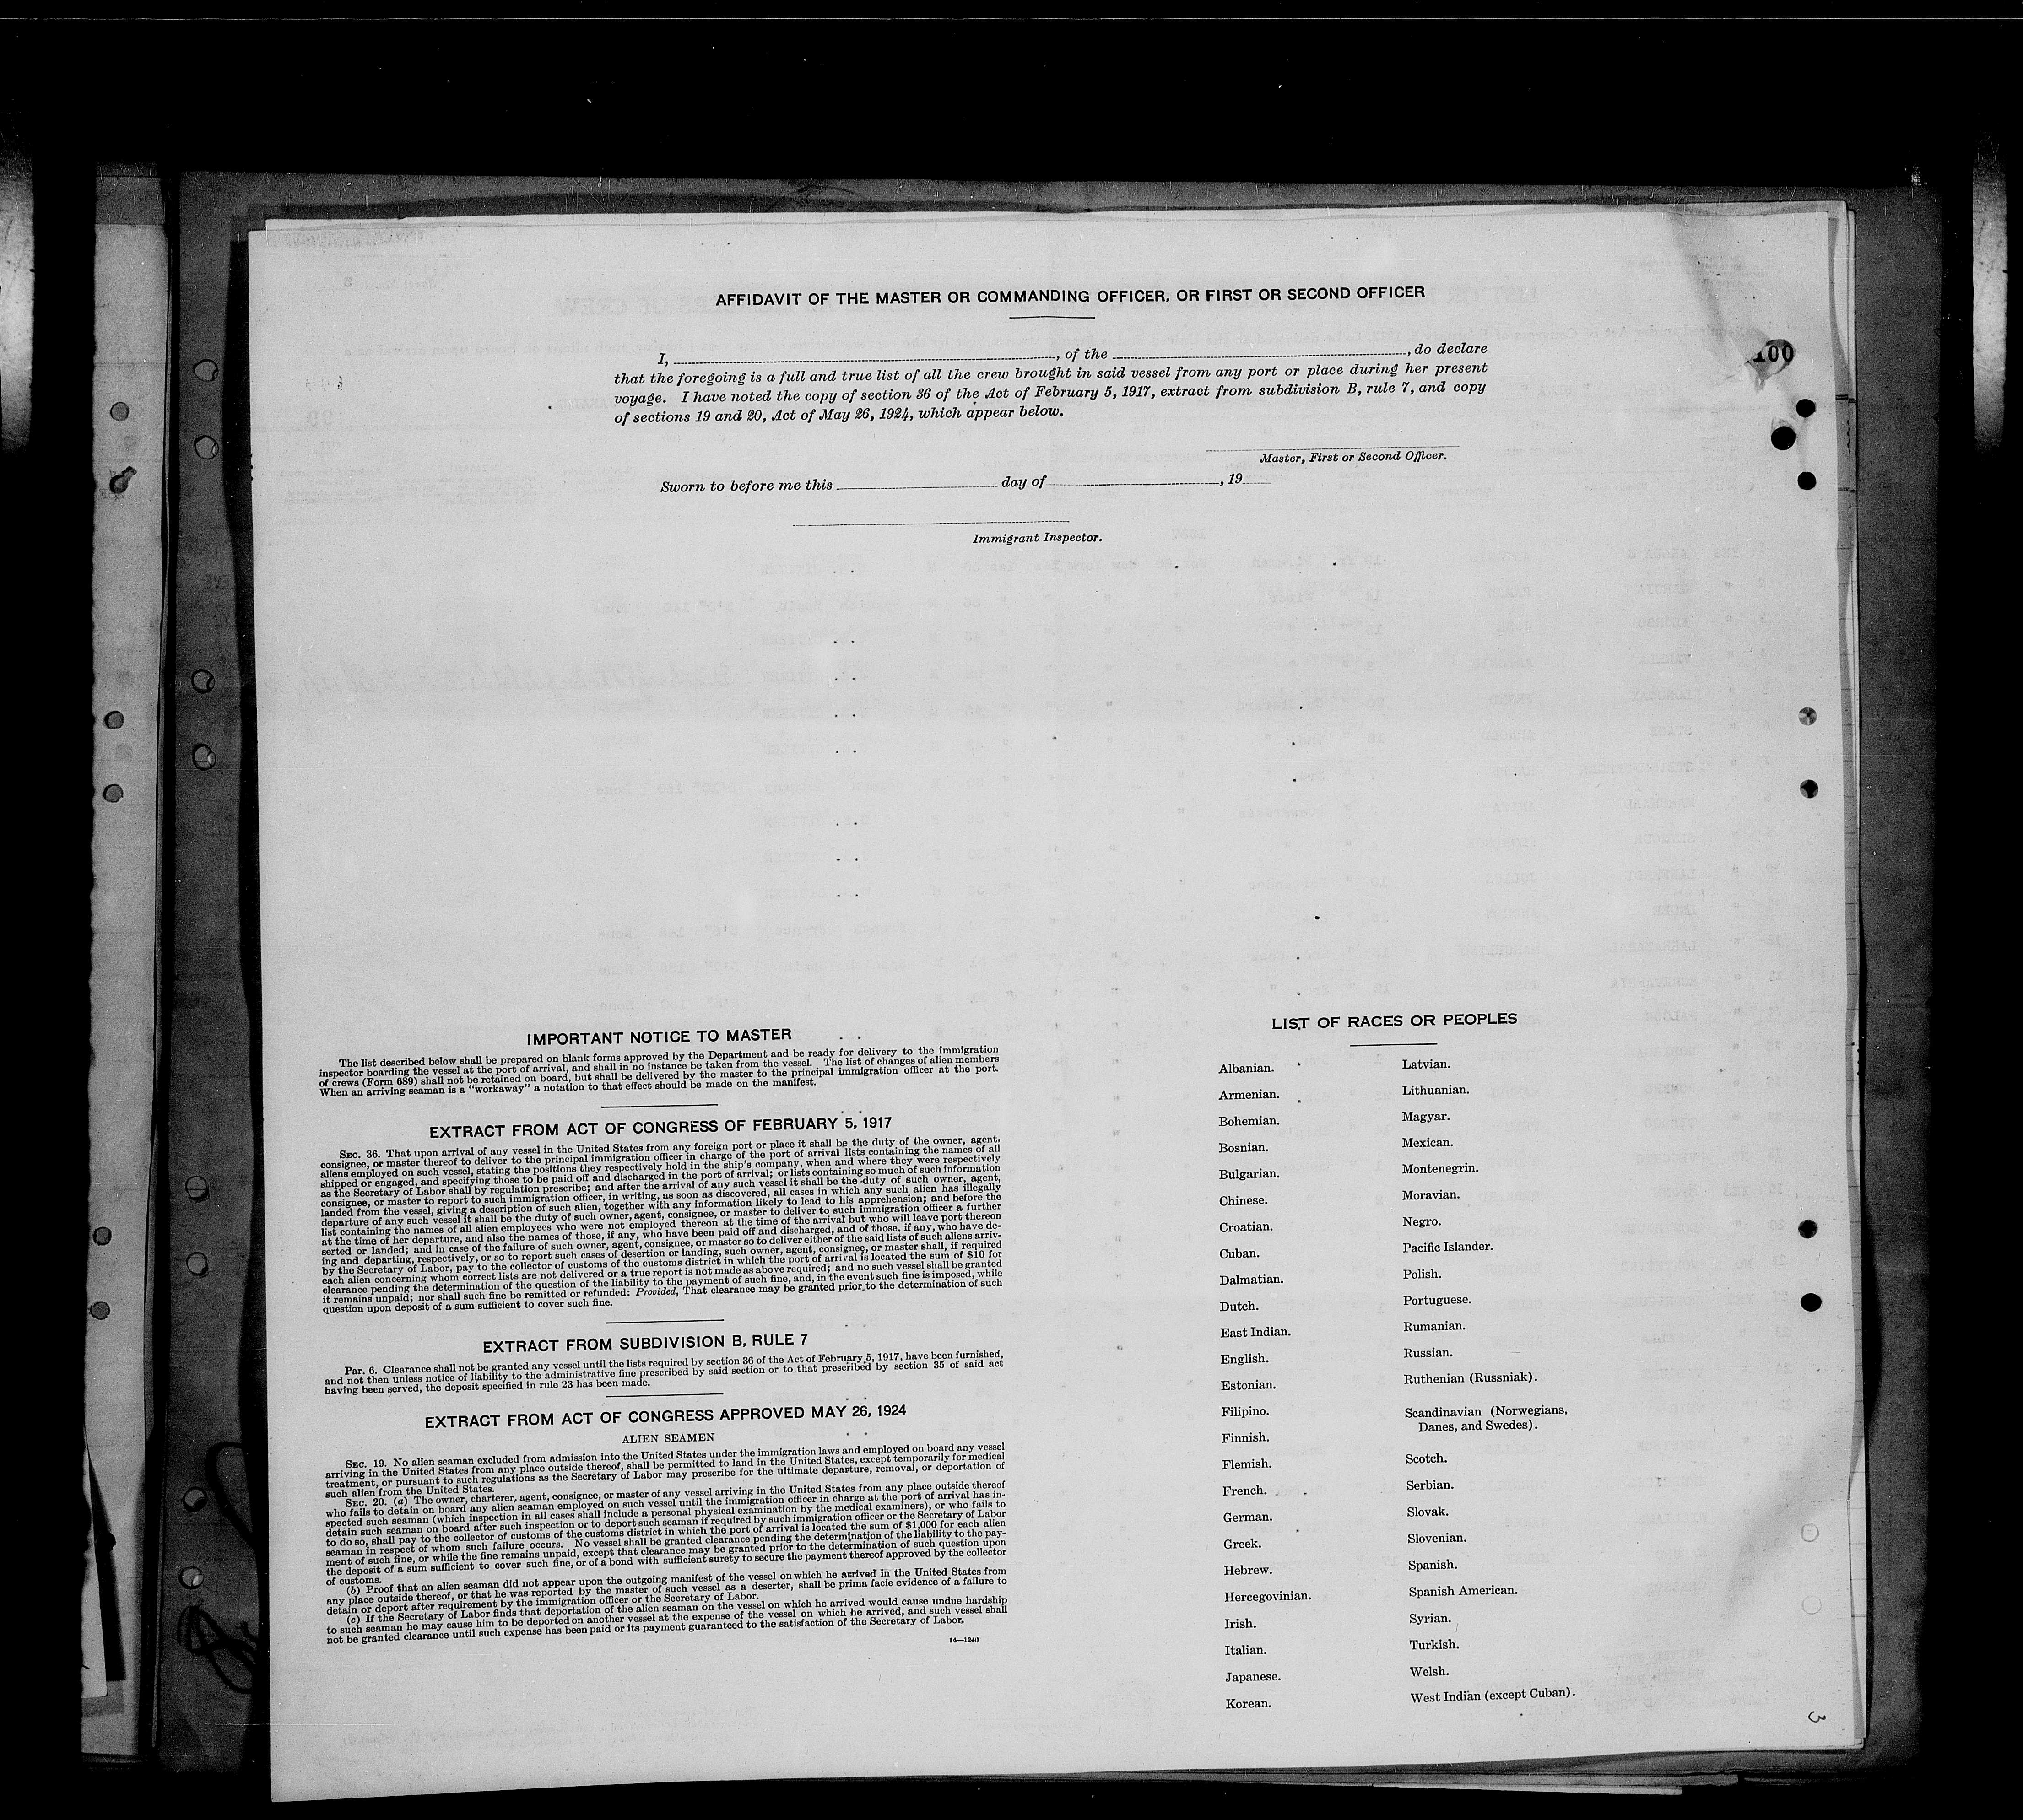 AFFIDAVIT OF THE MASTER OR COMMANDING OFFICER, OR FIRST OR SECOND OFFICER
I, , of the , do declare
that the foregoing is a full and true list of all the crew brought in said vessel from any port or place during her present
voyage. I have noted the copy of section 36 of the Act of February 5, 1917, extract from subdivision B, rule 7, and copy
of sections 19 and 20, Act of May 26, 1924, which appear below.
100
Master, First or Second Officer.
Sworn to before me this day of , 19
Immigrant Inspector.
IMPORTANT NOTICE TO MASTER
The list described below shall be prepared on blank forms approved by the Department and be ready for delivery to the immigration
inspector boarding the vessel at the port of arrival, and shall in no instance be taken from the vessel. The list of changes of alien members
of crews (Form 689) shall not be retained on board, but shall be delivered by the master to the principal immigration officer at the port.
When an arriving seaman is a "workaway" a notation to that effect should be made on the manifest.
EXTRACT FROM ACT OF CONGRESS OF FEBRUARY 5, 1917
SEC. 36. That upon arrival of any vessel in the United States from any foreign port or place it shall be the duty of the owner, agent,
consignee, or master thereof to deliver to the principal immigration officer in charge of the port of arrival lists containing the names of all
aliens employed on such vessel, stating the positions they respectively hold in the ship's company, when and where they were respectively
shipped or engaged, and specifying those to be paid off and discharged in the port of arrival; or lists containing so much of such information
as the Secretary of Labor shall by regulation prescribe; and after the arrival of any such vessel it shall be the duty of such owner, agent,
consignee, or master to report to such immigration officer, in writing, as soon as discovered, all cases in which any such alien has illegally
landed from the vessel, giving a description of such alien, together with any information likely to lead to his apprehension; and before the
departure of any such vessel it shall be the duty of such owner, agent, consignee, or master to deliver to such immigration officer a further
list containing the names of all alien employees who were not employed thereon at the time of the arrival but who will leave port thereon
at the time of her departure, and also the names of those, if any, who have been paid off and discharged, and of those, if any, who have de-
serted or landed; and in case of the failure of such owner, agent, consignee, or master so to deliver either of the said lists of such aliens arriv-
ing and departing, respectively, or so to report such cases of desertion or landing, such owner, agent, consignee, or master shall, if required
by the Secretary of Labor, pay to the collector of customs of the customs district in which the port of arrival is located the sum of $10 for
each alien concerning whom correct lists are not delivered or a true report is not made as above required; and no such vessel shall be granted
clearance pending the determination of the question of the liability to the payment of such fine, and, in the event such fine is imposed, while
it remains unpaid; nor shall such fine be remitted or refunded: Provided, That clearance may be granted prior to the determination of such
question upon deposit of a sum sufficient to cover such fine.
EXTRACT FROM SUBDIVISION B, RULE 7
Par. 6. Clearance shall not be granted any vessel until the lists required by section 36 of the Act of February 5, 1917, have been furnished,
and not then unless notice of liability to the administrative fine prescribed by said section or to that prescribed by section 35 of said act
having been served, the deposit specified in rule 23 has been made.
EXTRACT FROM ACT OF CONGRESS APPROVED MAY 26, 1924
ALIEN SEAMEN
SEC. 19. No alien seaman excluded from admission into the United States under the immigration laws and employed on board any vessel
arriving in the United States from any place outside thereof, shall be permitted to land in the United States, except temporarily for medical
treatment, or pursuant to such regulations as the Secretary of Labor may prescribe for the ultimate departure, removal, or deportation of
such alien from the United States.
SEC. 20. (a) The owner, charterer, agent, consignee, or master of any vessel arriving in the United States from any place outside thereof
who fails to detain on board any alien seaman employed on such vessel until the immigration officer in charge at the port of arrival has in-
spected such seaman (which inspection in all cases shall include a personal physical examination by the medical examiners), or who fails to
detain such seaman on board after such inspection or to deport such seaman if required by such immigration officer or the Secretary of Labor
to do so, shall pay to the collector of customs of the customs district in which the port of arrival is located the sum of $1,000 for each alien
seaman in respect of whom such failure occurs. No vessel shall be granted clearance pending the determination of the liability to the pay-
ment of such fine, or while the fine remains unpaid, except that clearance may be granted prior to the determination of such question upon
the deposit of a sum sufficient to cover such fine, or of a bond with sufficient surety to secure the payment thereof approved by the collector
of customs.
(b) Proof that an alien seaman did not appear upon the outgoing manifest of the vessel on which he arrived in the United States from
any place outside thereof, or that he was reported by the master of such vessel as a deserter, shall be prima facie evidence of a failure to
detain or deport after requirement by the immigration officer or the Secretary of Labor.
(c) If the Secretary of Labor finds that deportation of the alien seaman on the vessel on which he arrived would cause undue hardship
to such seaman he may cause him to be deported on another vessel at the expense of the vessel on which he arrived, and such vessel shall
not be granted clearance until such expense has been paid or its payment guaranteed to the satisfaction of the Secretary of Labor.
14—1240
LIST OF RACES OR PEOPLES
Albanian.
Armenian.
Bohemian.
Bosnian.
Bulgarian.
Chinese.
Croatian.
Cuban.
Dalmatian.
Dutch.
East Indian.
English.
Estonian.
Filipino.
Finnish.
Flemish.
French.
German.
Greek.
Hebrew.
Hercegovinian.
Irish.
Italian.
Japanese.
Korean.
Latvian.
Lithuanian.
Magyar.
Mexican.
Montenegrin.
Moravian.
Negro.
Pacific Islander.
Polish.
Portuguese.
Rumanian.
Russian.
Ruthenian (Russniak).
Scandinavian (Norwegians,
Danes, and Swedes).
Scotch.
Serbian.
Slovak.
Slovenian.
Spanish.
Spanish American.
Syrian.
Turkish.
Welsh.
West Indian (except Cuban).
3